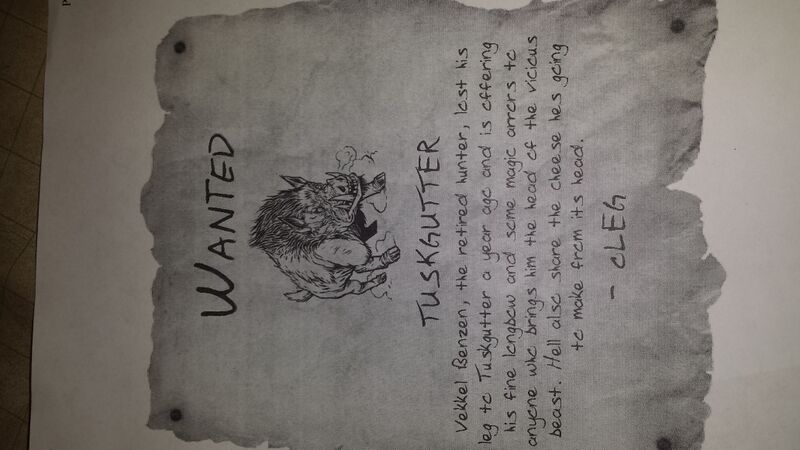 WANTED
TUSKGUTTER
Vekkel Benzen, the retired hunter, lost his
leg to Tuskgutter a year ago and is offering
his fine longbow and some magic arrows to
anyone who brings him the head of the vicious
beast. Hell also share the cheese hes going
to make from its head.
- CLEG